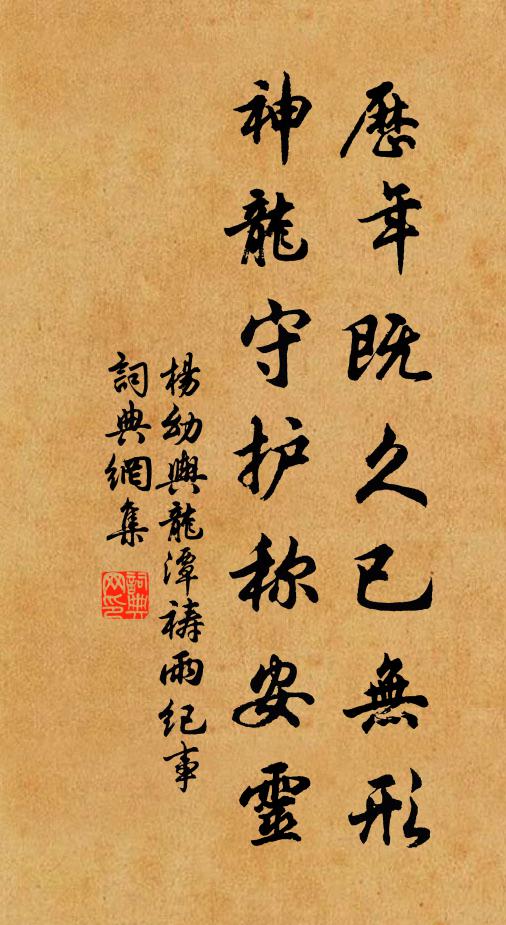 歷年既久已無形
神龍守护称安靈
楊幼與龍潭禱雨纪事
詞典網集
詞典网印